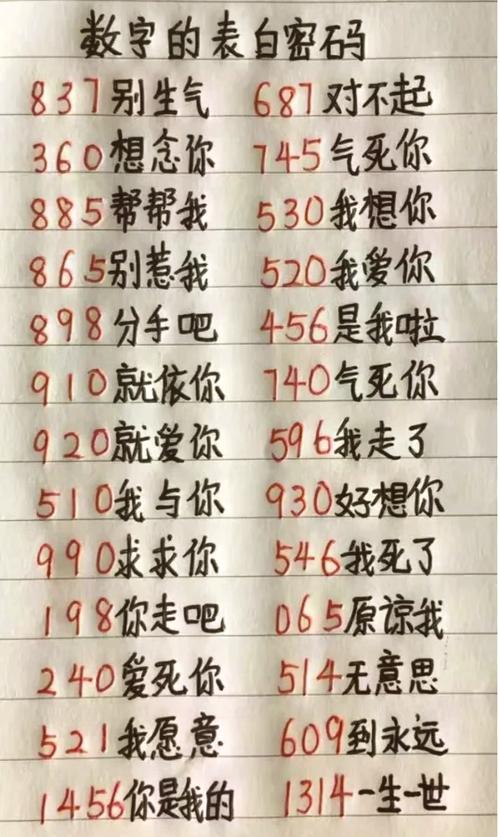 数字的表白密码
837别生气 687对不起
360想念你 745气死你
885帮帮我 530我想你
865别惹我 520我爱你
898分手吧 456是我啦
910就依你 740气死你
920就爱你 596我走了
510我与你 930好想你
990求求你 546我死了
198你走吧 065原谅我
240爱死你 514无意思
521我愿意 609到永远
1456你是我的 1314一生一世